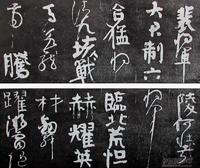 裴将軍
大君制六
合猛将
清九垓戰
馬若龍
虎騰
陵何壯哉
将軍
臨北荒烜
赫耀英
材劒舞
躍游電